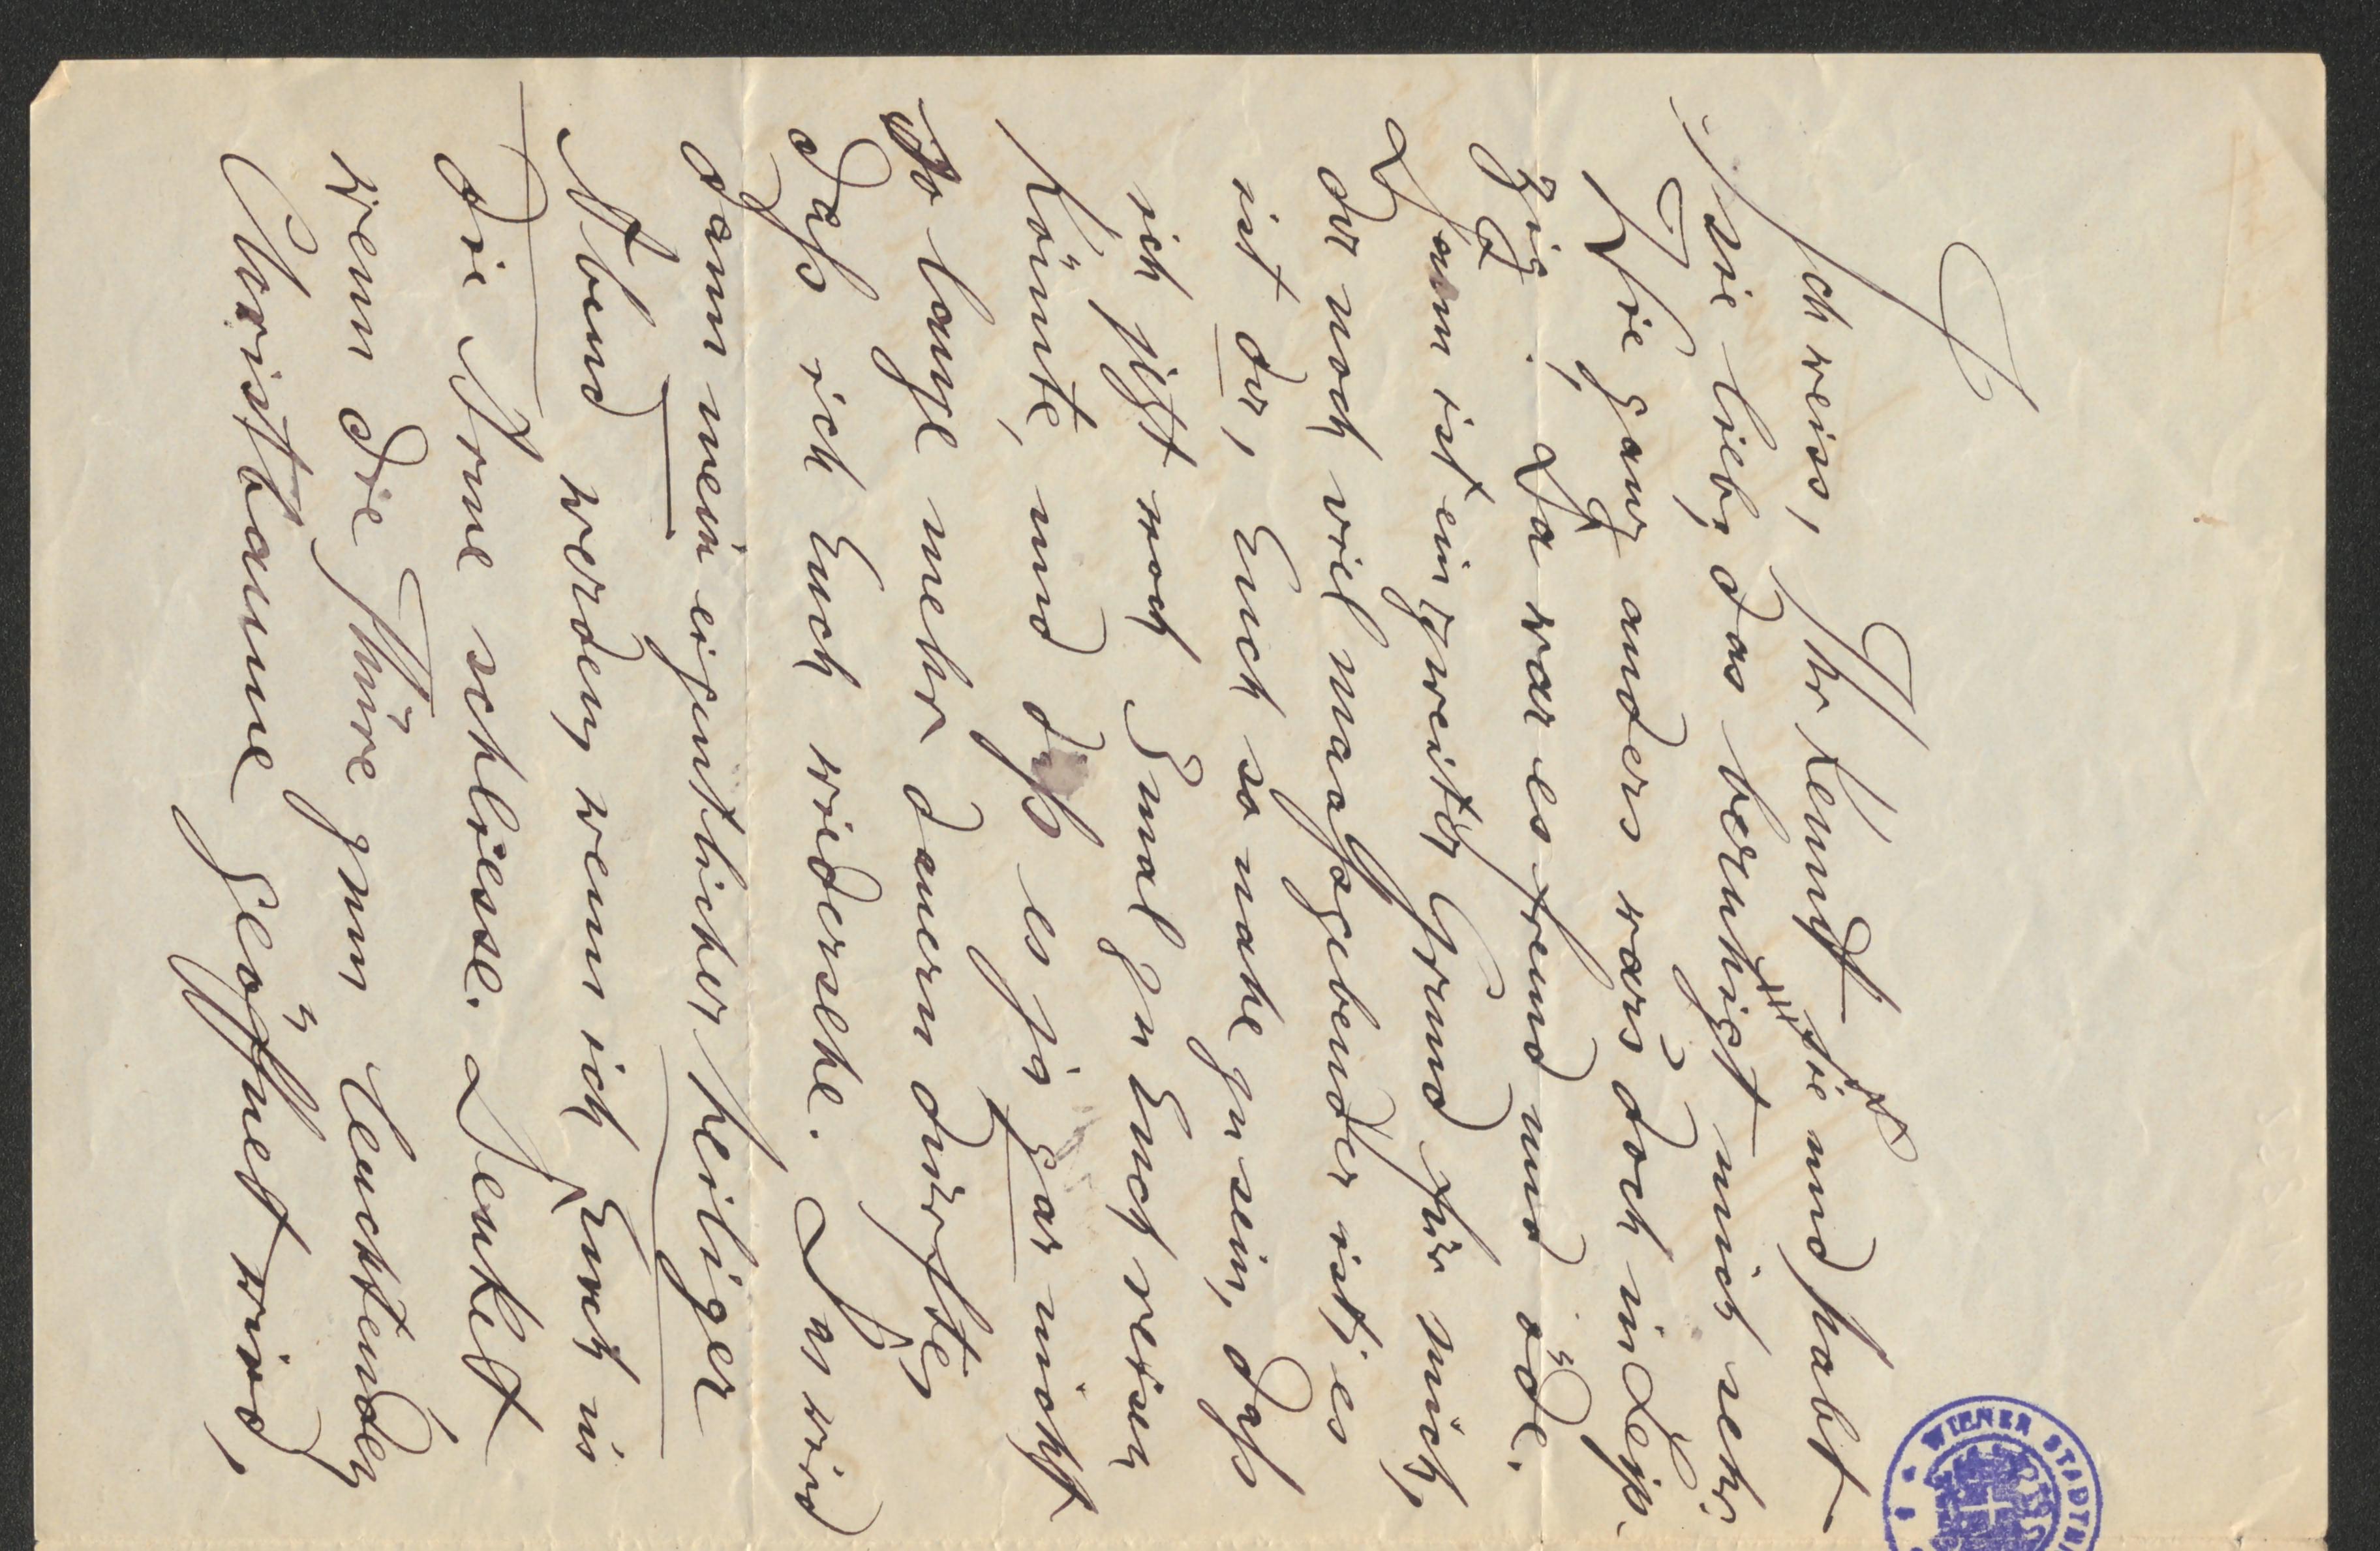 Ich weiss, Ihr kennt sie und habt
sie lieb, das beruhigt mich sehr.
Wie ganz anders wars doch in Leip-
zig! Da war es fremd und öde.
Dann ist ein zweiter Grund für mich,
der noch viel maßgebender ist; es
ist der, Euch so nahe zu sein, daß
ich jetzt noch 3 mal zu Euch reisen
könnte, und daß es ja gar nicht
so lange mehr dauern dürfte,
daß ich Euch wiedersehe. Das wird
dann mein eigentlicher heiliger
Abend werden, wenn ich Euch in
die Arme schliesse. Denket
wenn die Thüre zum leuchtenden
Christbaume geöffnet wird,
WIENER STADT